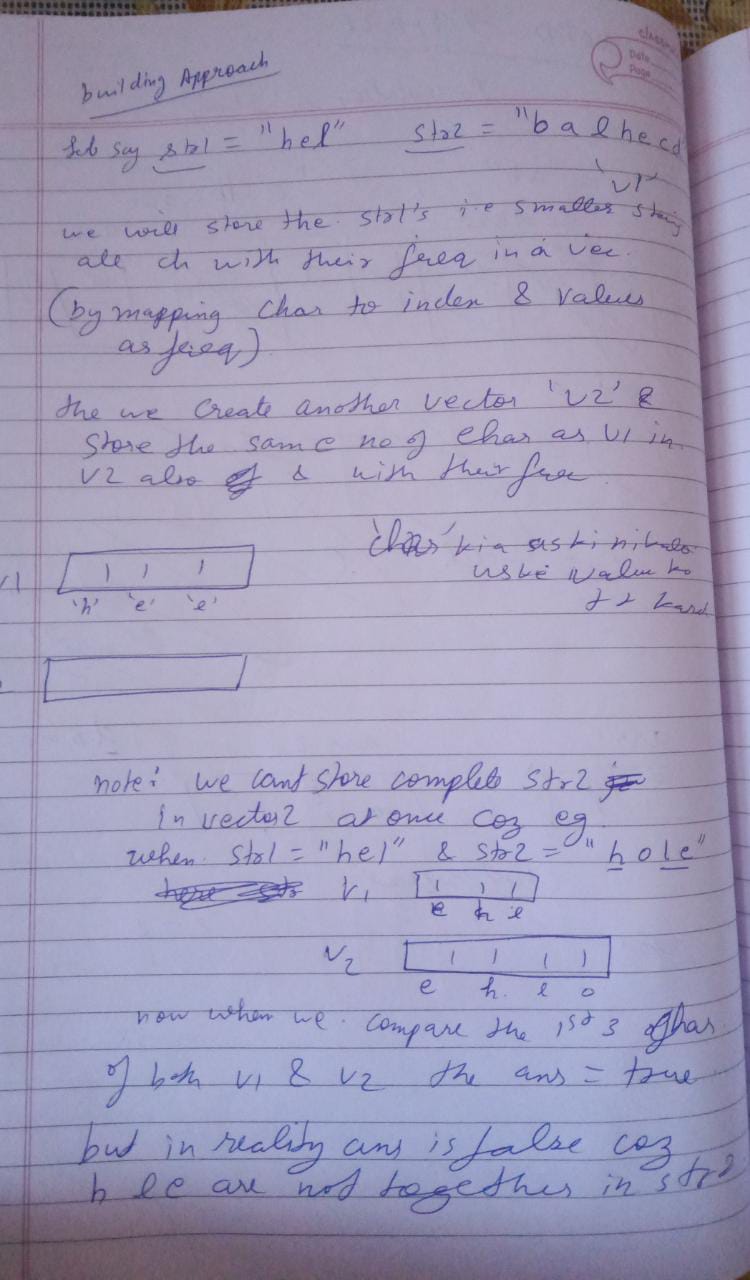 classmate
Date
Page
building Approach
Let say str1 = "hel" str2 = "balhecd
'v1'
we will store the str1's i.e smaller string
all ch with their freq in a vec.
(by mapping char to index & values
as freq)
the we create another vector 'v2' &
store the same no of char as v1 in
v2 also & with their freq
'char' kia uski nikalo
uske value ko
++ kardo
v1 | | |
'h' 'e' 'l'
note: we cant store complete str2
in vector2 at once coz eg.
when str1 = "hel" & str2 = "hole"
V1 1 1 1
e h l
V2 1 1 1 1
e h l o
now when we compare the 1st 3 char
of both v1 & v2 the ans = true
but in reality ans is false coz
h l e are not together in str2